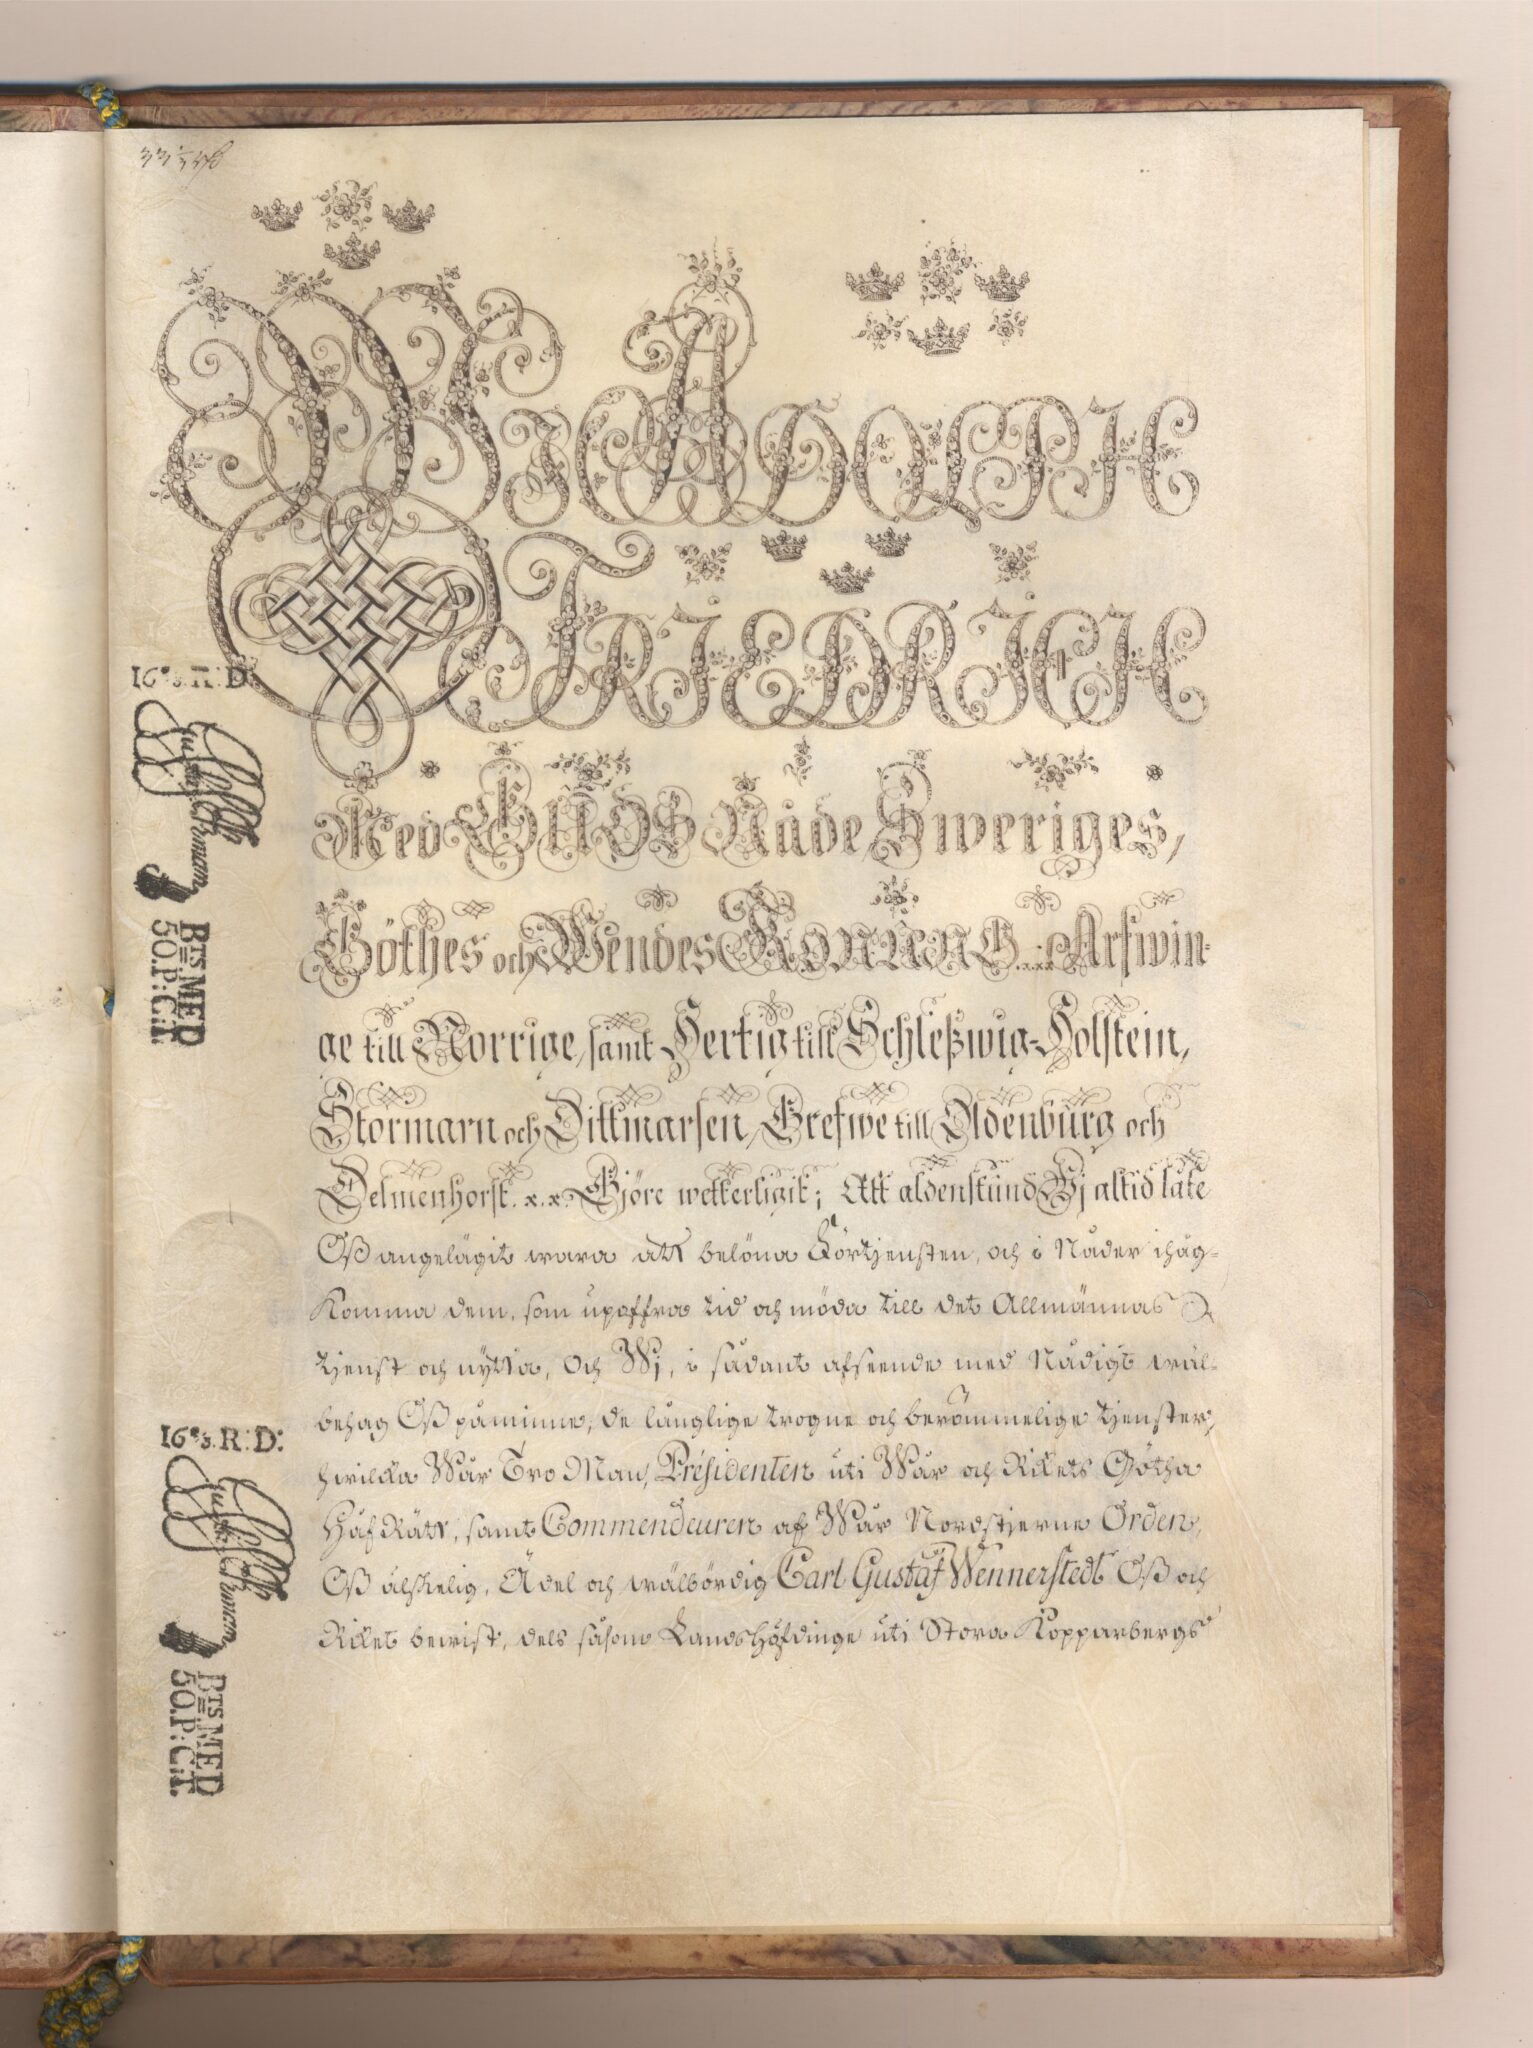 Wi ADOLPH
FRIEDRICH
Med GUDS Nåde, Sweriges,
Göthes och Wendes KONUNG .x.x. Arfwin-
ge till Norrige, samt Hertig till Schleßwig-Holstein,
Stormarn och Dittmarsen, Grefwe till Oldenburg och
Delmenhorst .x.x. Gjöre wetterligit; Att aldenstund Wj altid låte
Oß angelägit wara att belöna Förtjensten, och i Nåder ihåg-
komma dem, som upoffra tid och möda till det Allmännas
tjenst och nytta, Och Wj, i sådant afseende med Nådigt wäl-
behag Oß påminne, de långlige trogne och berömmelige tjenster,
hwilcka Wår Tro Man, Præsidenten uti Wår och Rikets Götha
HåfRätt, samt Commendeuren af Wår Nordstjerne Orden,
Oß älskelig, Ädel och wälbördig Carl Gustaf Wennerstedt Oß och
Riket bewist, dels såsom LandsHöfdinge uti Stora Kopparbergs
16 R:D:
BTS MED
50.P:C:T.
16 R:D:
BTS MED
50.P:C:T.